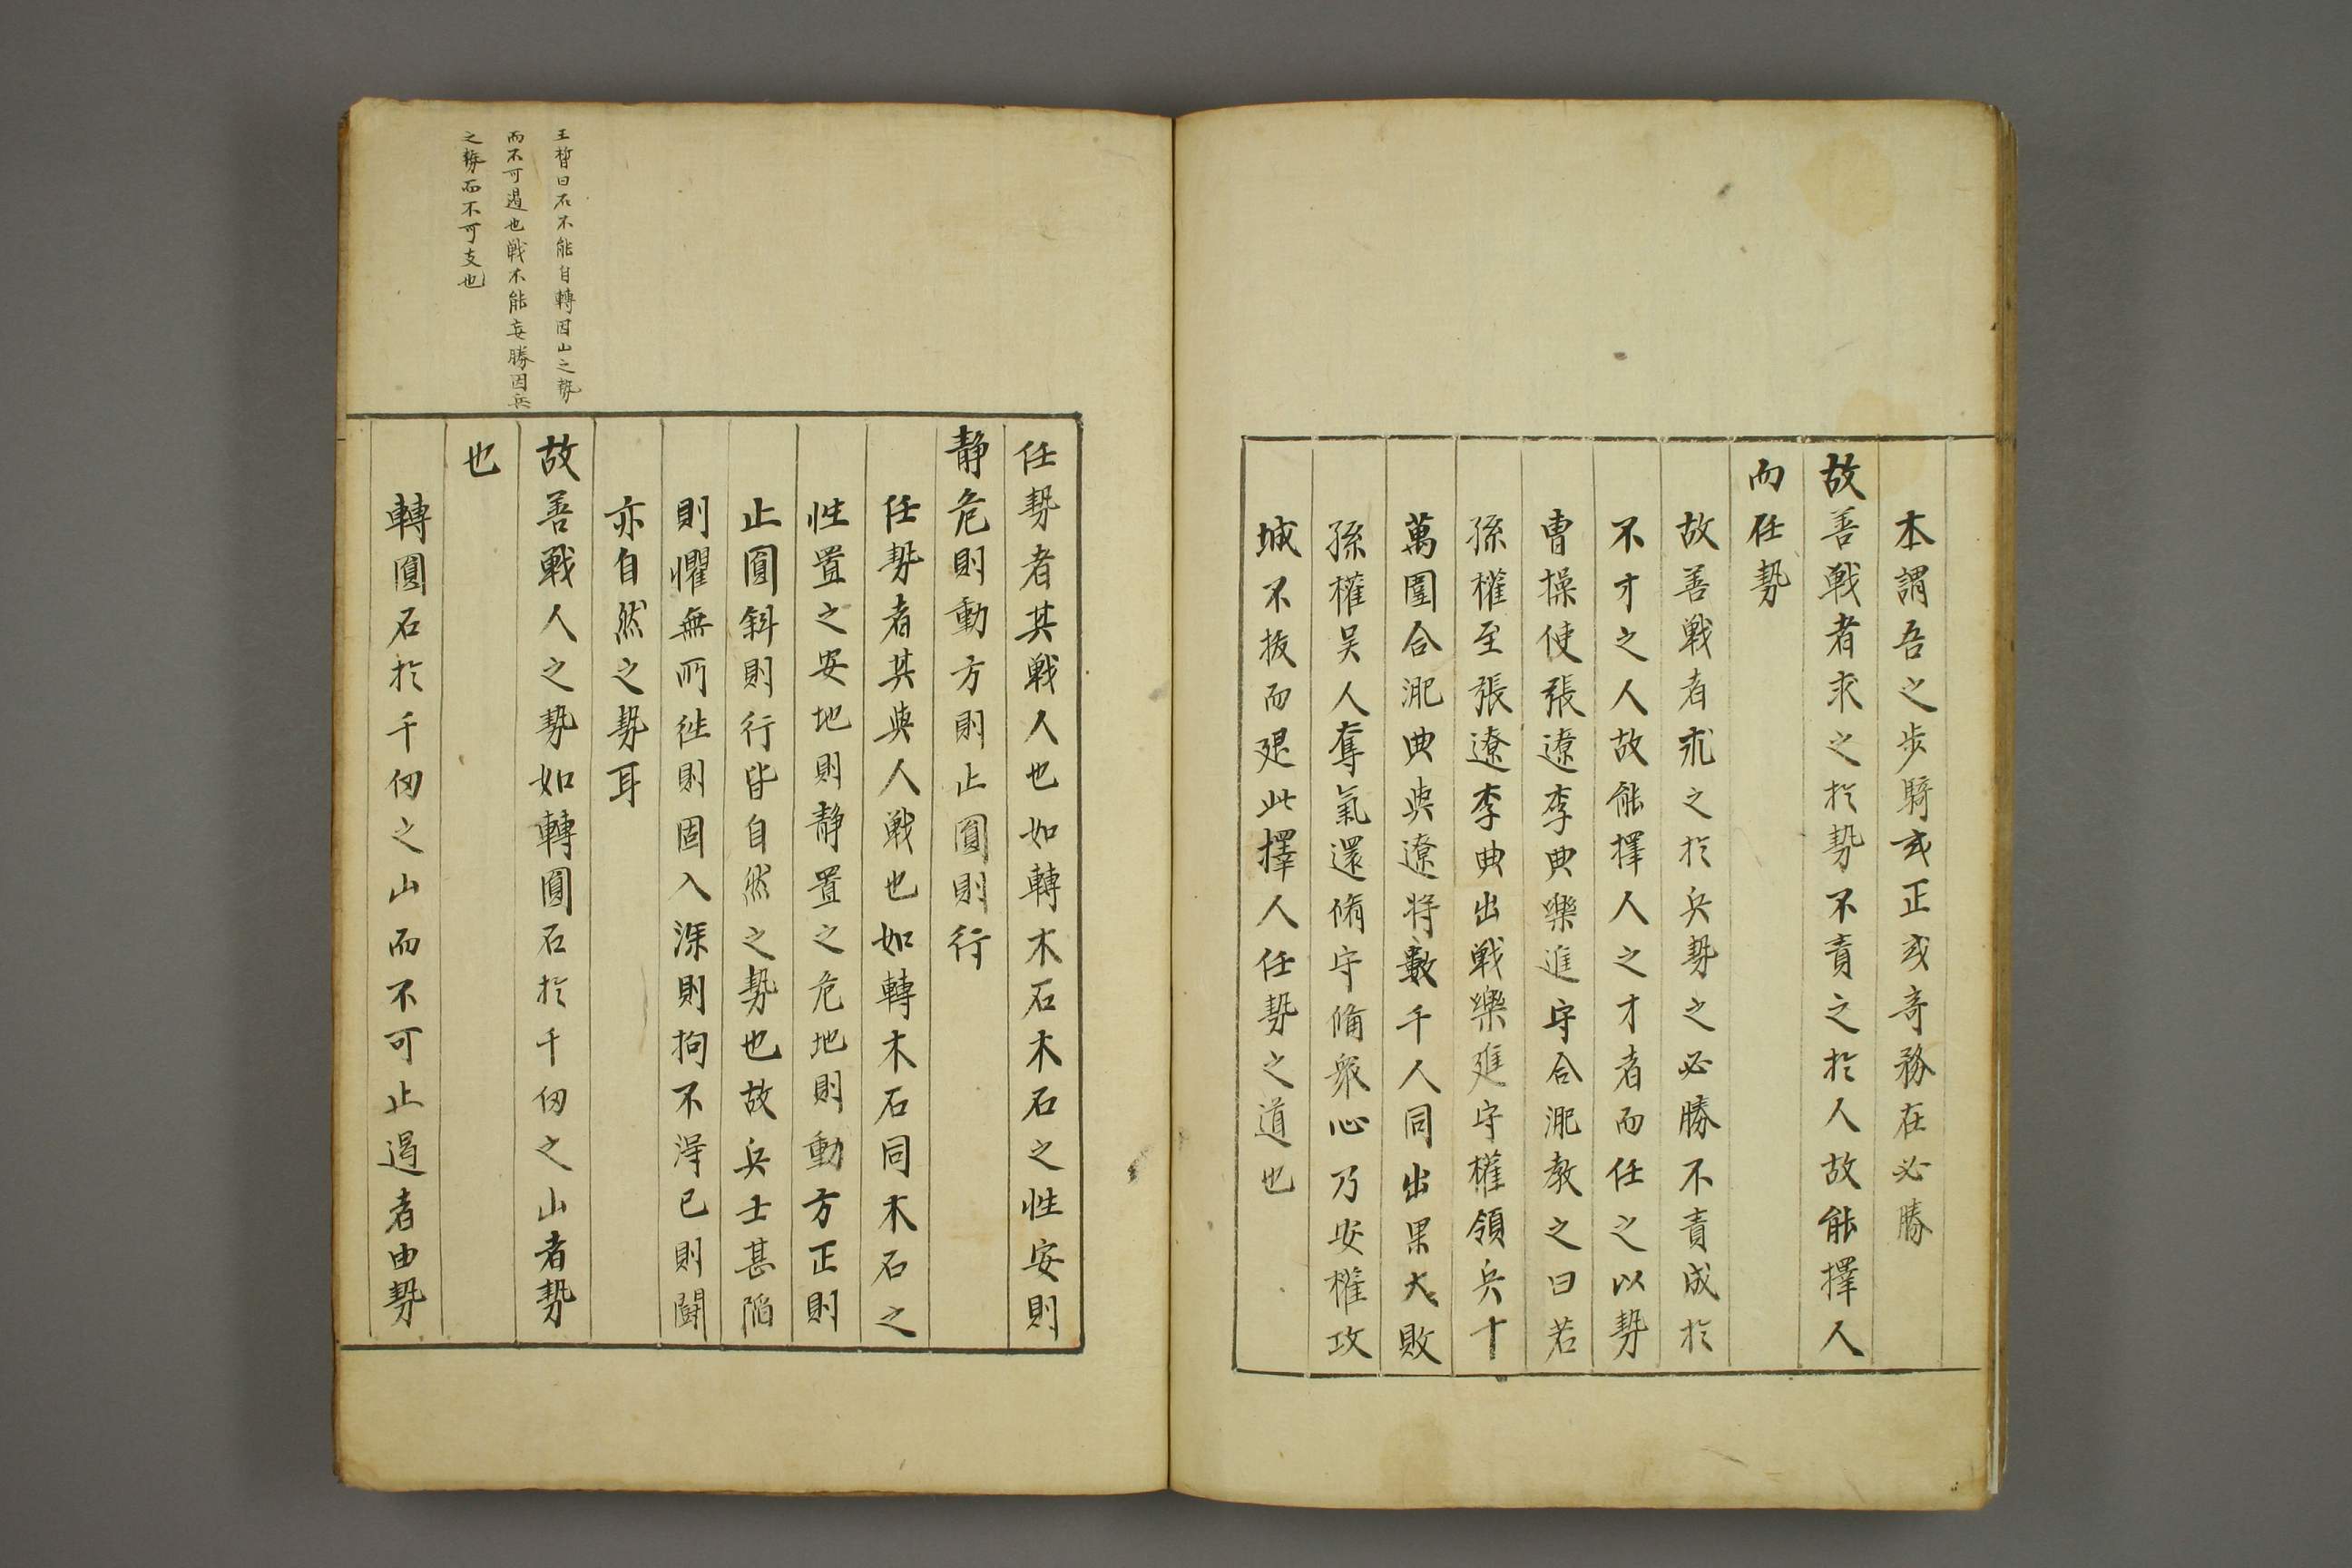 本謂吾之步騎或正或奇務在必勝
故善戦者求之於勢不責之於人故能擇人
而任勢
故善戦者求之於兵勢之必勝不責成於
不才之人故能擇人之才者而任之以勢
曹操使張遼李典樂進守合淝教之曰若
孫權至張遼李典出戦樂進守權領兵十
萬圍合淝典與遼將數千人同出果大敗
孫權吴人奪氣還脩守備衆心乃安權攻
城不拔而退此擇人任勢之道也
王晳曰石不能自轉因山之勢
而不可遏也戦不能妄勝因兵
之勢而不可支也
任勢者其戦人也如轉木石木石之性安則
静危則動方則止圓則行
任勢者其與人戦也如轉木石同木石之
性置之安地則静置之危地則動方正則
止圓斜則行皆自然之勢也故兵士甚陷
則懼無所往則固入深則拘不得已則鬪
亦自然之勢耳
故善戦人之勢如轉圓石於千仞之山者勢
也
轉圓石於千仞之山而不可止遏者由勢